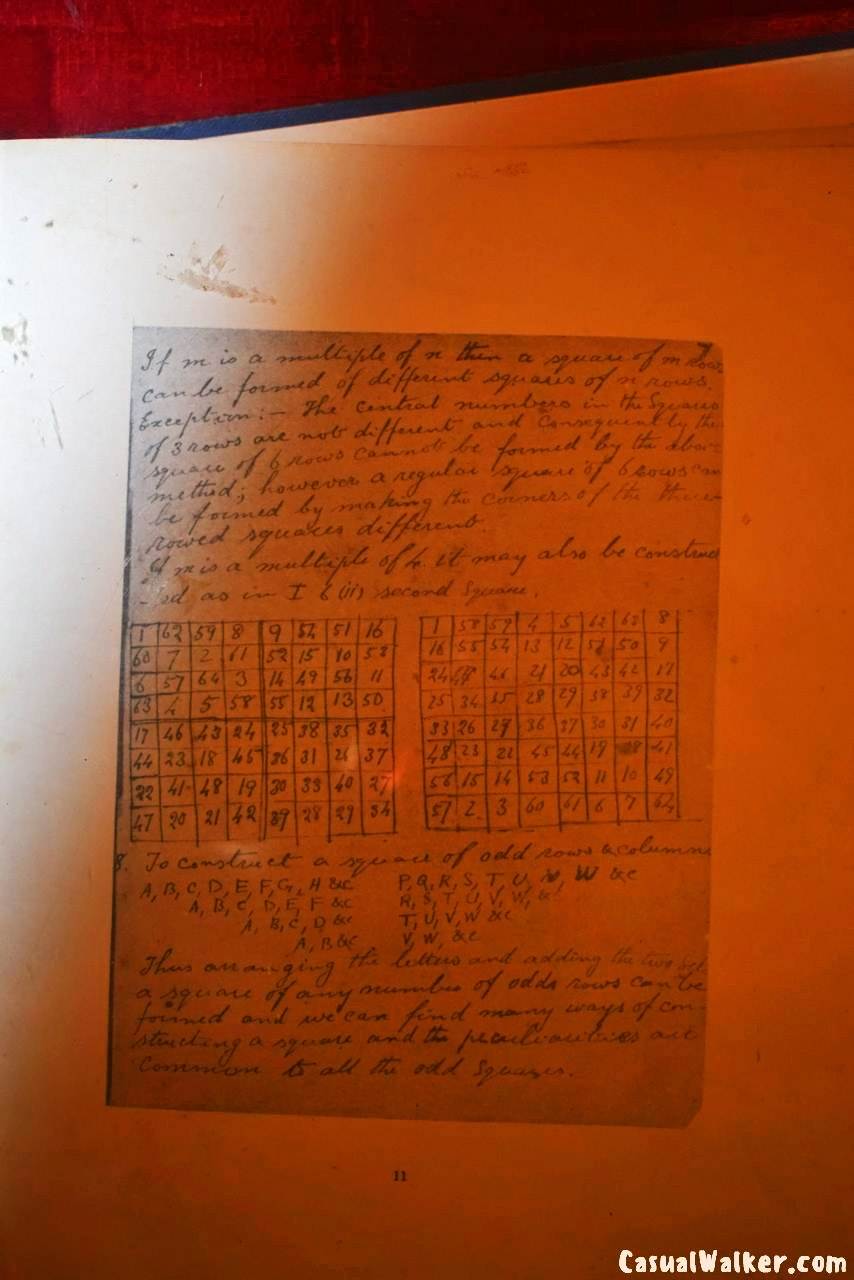 7
If m is a multiple of n then a square of m rows
can be formed of different squares of n rows.
Exception:- The central numbers in the Squares
of 3 rows are not different and Consequently the
square of 6 rows cannot be formed by the above
method; however a regular square of 6 rows can
be formed by making the corners of the three
rowed squares different.
If m is a multiple of 4 it may also be construct
-ed as in I 6 (ii) second square.
1 62 59 8 9 54 51 16 1 58 59 4 5 62 63 8
60 7 2 61 52 15 10 53 16 55 54 13 12 51 50 9
6 57 64 3 14 49 56 11 24 47 46 21 20 43 42 17
63 4 5 58 55 12 13 50 25 34 35 28 29 38 39 32
17 46 43 24 25 38 35 32 33 26 27 36 37 30 31 40
44 23 18 45 36 31 26 37 48 23 22 45 44 19 18 41
22 41 48 19 30 33 40 27 56 15 14 53 52 11 10 49
47 20 21 42 39 28 29 34 57 2 3 60 61 6 7 64
8. To construct a square of odd rows & columns
A, B, C, D, E, F, G, H &c P, Q, R, S, T, U, V, W &c
A, B, C, D, E, F &c R, S, T, U, V, W, &c
A, B, C, D &c T, U, V, W &c
A, B &c V, W, &c
Thus arranging the letters and adding the two sets
a square of any number of odd rows can be
formed and we can find many ways of con-
structing a square and the peculiarities are
common to all the odd Squares.
11
CasualWalker.com